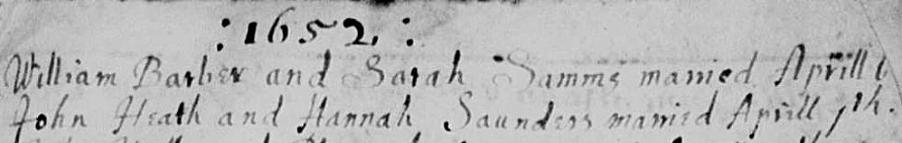 : 1652. :
William Barber and Sarah Samms maried Aprill
John Heath and Hannah Saunders maried Aprill 7th.